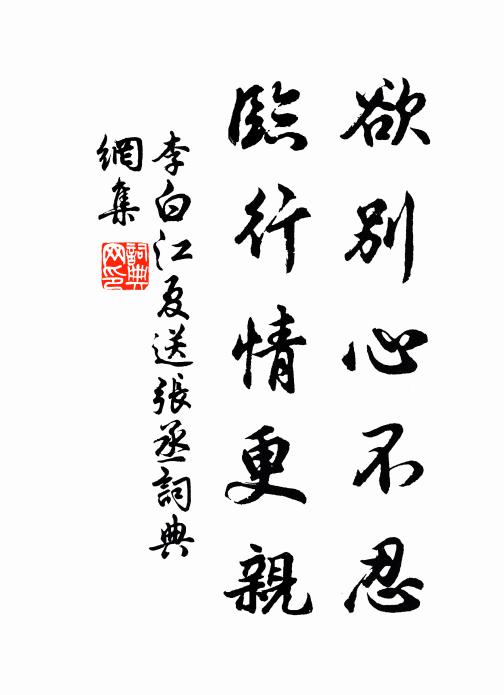 欲别心不忍
臨行情更親
李白江夏送張丞詞典
網集
詞典网印